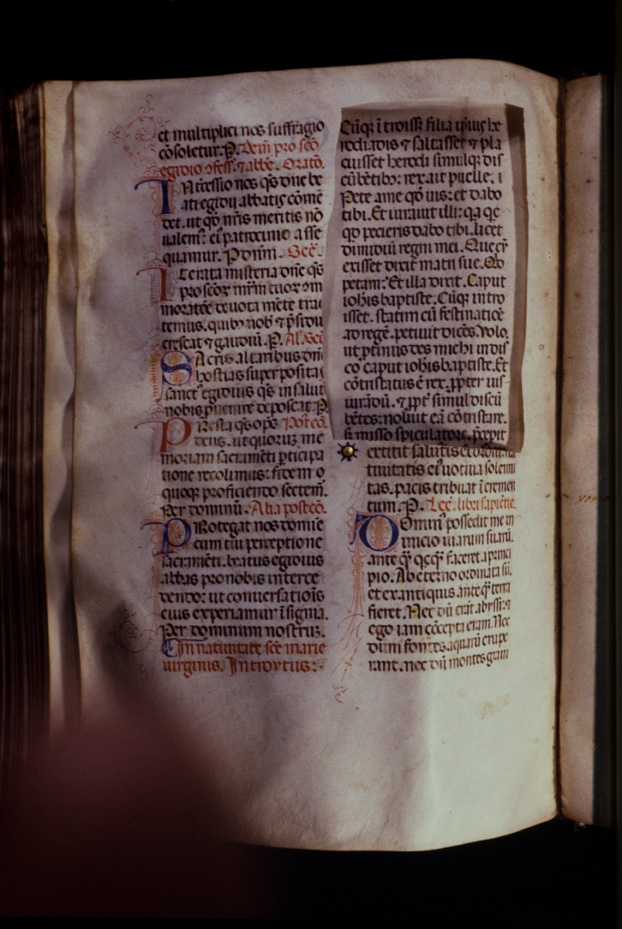 et multiplici nos suffragio
cōsoletur. P. Itē pro scō
egidio 9fess. ⁊ abbē. Oratō.
Intercessio nos q̄s dn̄e be
ati egidij abbatis cōmē
det. ut qd̄ nr̄is meritis nō
ualem⁹. ei⁹ patrocinio asse
quamur. P. dn̄m. Sēc.
terata misteria dn̄e q̄s
moratēs deuota mēte trac
temus. quib⁹ nob̄ ⁊ p̄sidiū
crescat ⁊ gaudiū. P. Al. Sēc
Sacris altaribus dn̄e
hostias superpositas
sanct⁹ egidius q̄s in salutē
nobis puenire deposcat. P.
Prestā q̄s op̄s. Post cō.
deus. ut quoruȝ me
moriam sacramēti p̄ticipa
tione recolimus: fidem q
quoqȝ proficiendo sectem⁹.
Per dominū. Alia postcō.
Protegat nos domine
cum tui perceptione
sacramēti. beatus egidius
abbas pro nobis interce
dendo: ut conuersationis
eius experiamur isignia.
Per dominum nostruȝ.
In natiuitate scē marie
uirginis. Introytus:
Cūqȝ ītroissȝ filia ip̄ius he
rodiadis ⁊ saltasset ⁊ pla
cuisset herodi simulqȝ dis
cūbētibȝ: rex ait puelle.
Pete a me qd̄ uis: et dabo
tibi. Et iurauit illi: qa qc
qd̄ pecieris dabo tibi. licet
dimidiū regni mei. Que cū
exisset dixit matri sue. Qd̄
petam? Et illa dixit. Caput
ioh̄is baptiste. Cūqȝ intro
isset. statim cū festinatiōe
ad regē. petiuit dicēs. Volo.
ut ꝓtinus des michi in dis
co caput ioh̄is baptiste. Et
cōtristatus ē rex. ꝓpter ius
iurādū. ⁊ ꝓpt̄ simul discū
bētes: noluit eā cōtristare.
s̄ misso spiculatore. p̄cepit
extitit salutis exordiū
tiuitatis ei⁹ uotiua solemni
tas. pacis tribuat īcremen
tum. P. Lec̄. libri sapiētie.
Domin⁹ possedit me in
inicio uiarum suarū.
ante qȝ qcqȝ faceret a princi
pio. Ab eterno ordinata sū.
et ex antiquis. anteqȝ terra
fieret. Nec dū erāt abyssi: ⁊
ego iam cōcepta eram. Nec
dū mi fontes aquarū erupe
rant. nec dū montes graui